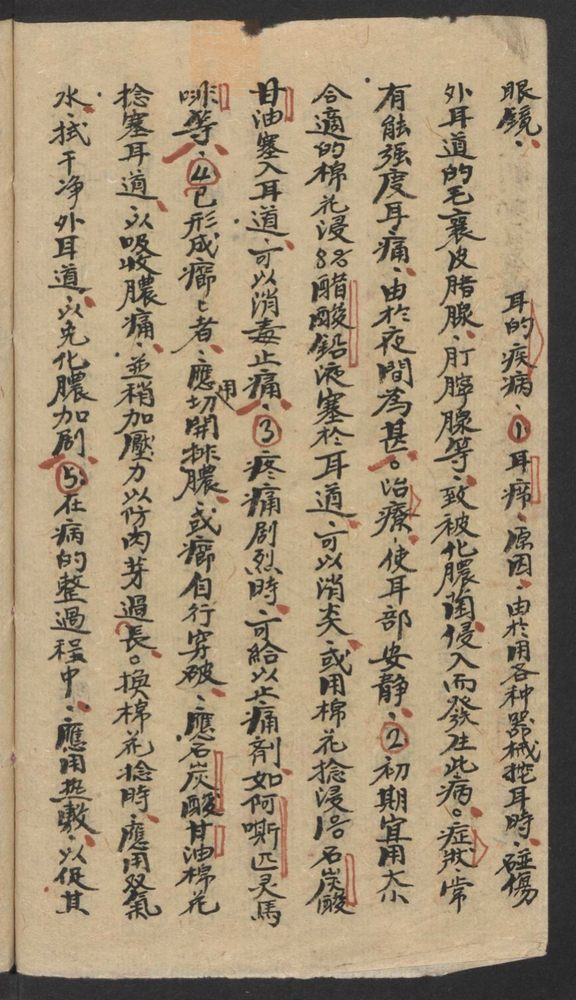 眼鏡、　耳的疾病、①耳癤、原因、由於用各种器械挖耳時、碰傷
外耳道的毛囊皮脂腺、肛䏡腺等、致被化膿菌侵入而發生此病。症狀、常
有能強度耳痛、由於夜間為甚。治療、使耳部安静、②初期宜用大小
合適的棉花浸8%醋酸鉛液塞於耳道、可以消炎、或用棉花捻浸1%石炭酸
甘油塞入耳道、可以消毒止痛、③疼痛剧烈時、可給以止痛剤如阿嘶匹灵馬
啡等、④已形成癤已者、應用切開排膿、或癤自行穿破、應石炭酸甘油棉花
捻塞耳道、以吸收膿痛、並稍加壓力以防肉芽過長。換棉花捻時、應用双氣
水、拭干净外耳道、以免化膿加剧⑤在病的整過程中、應用热敷、以促其